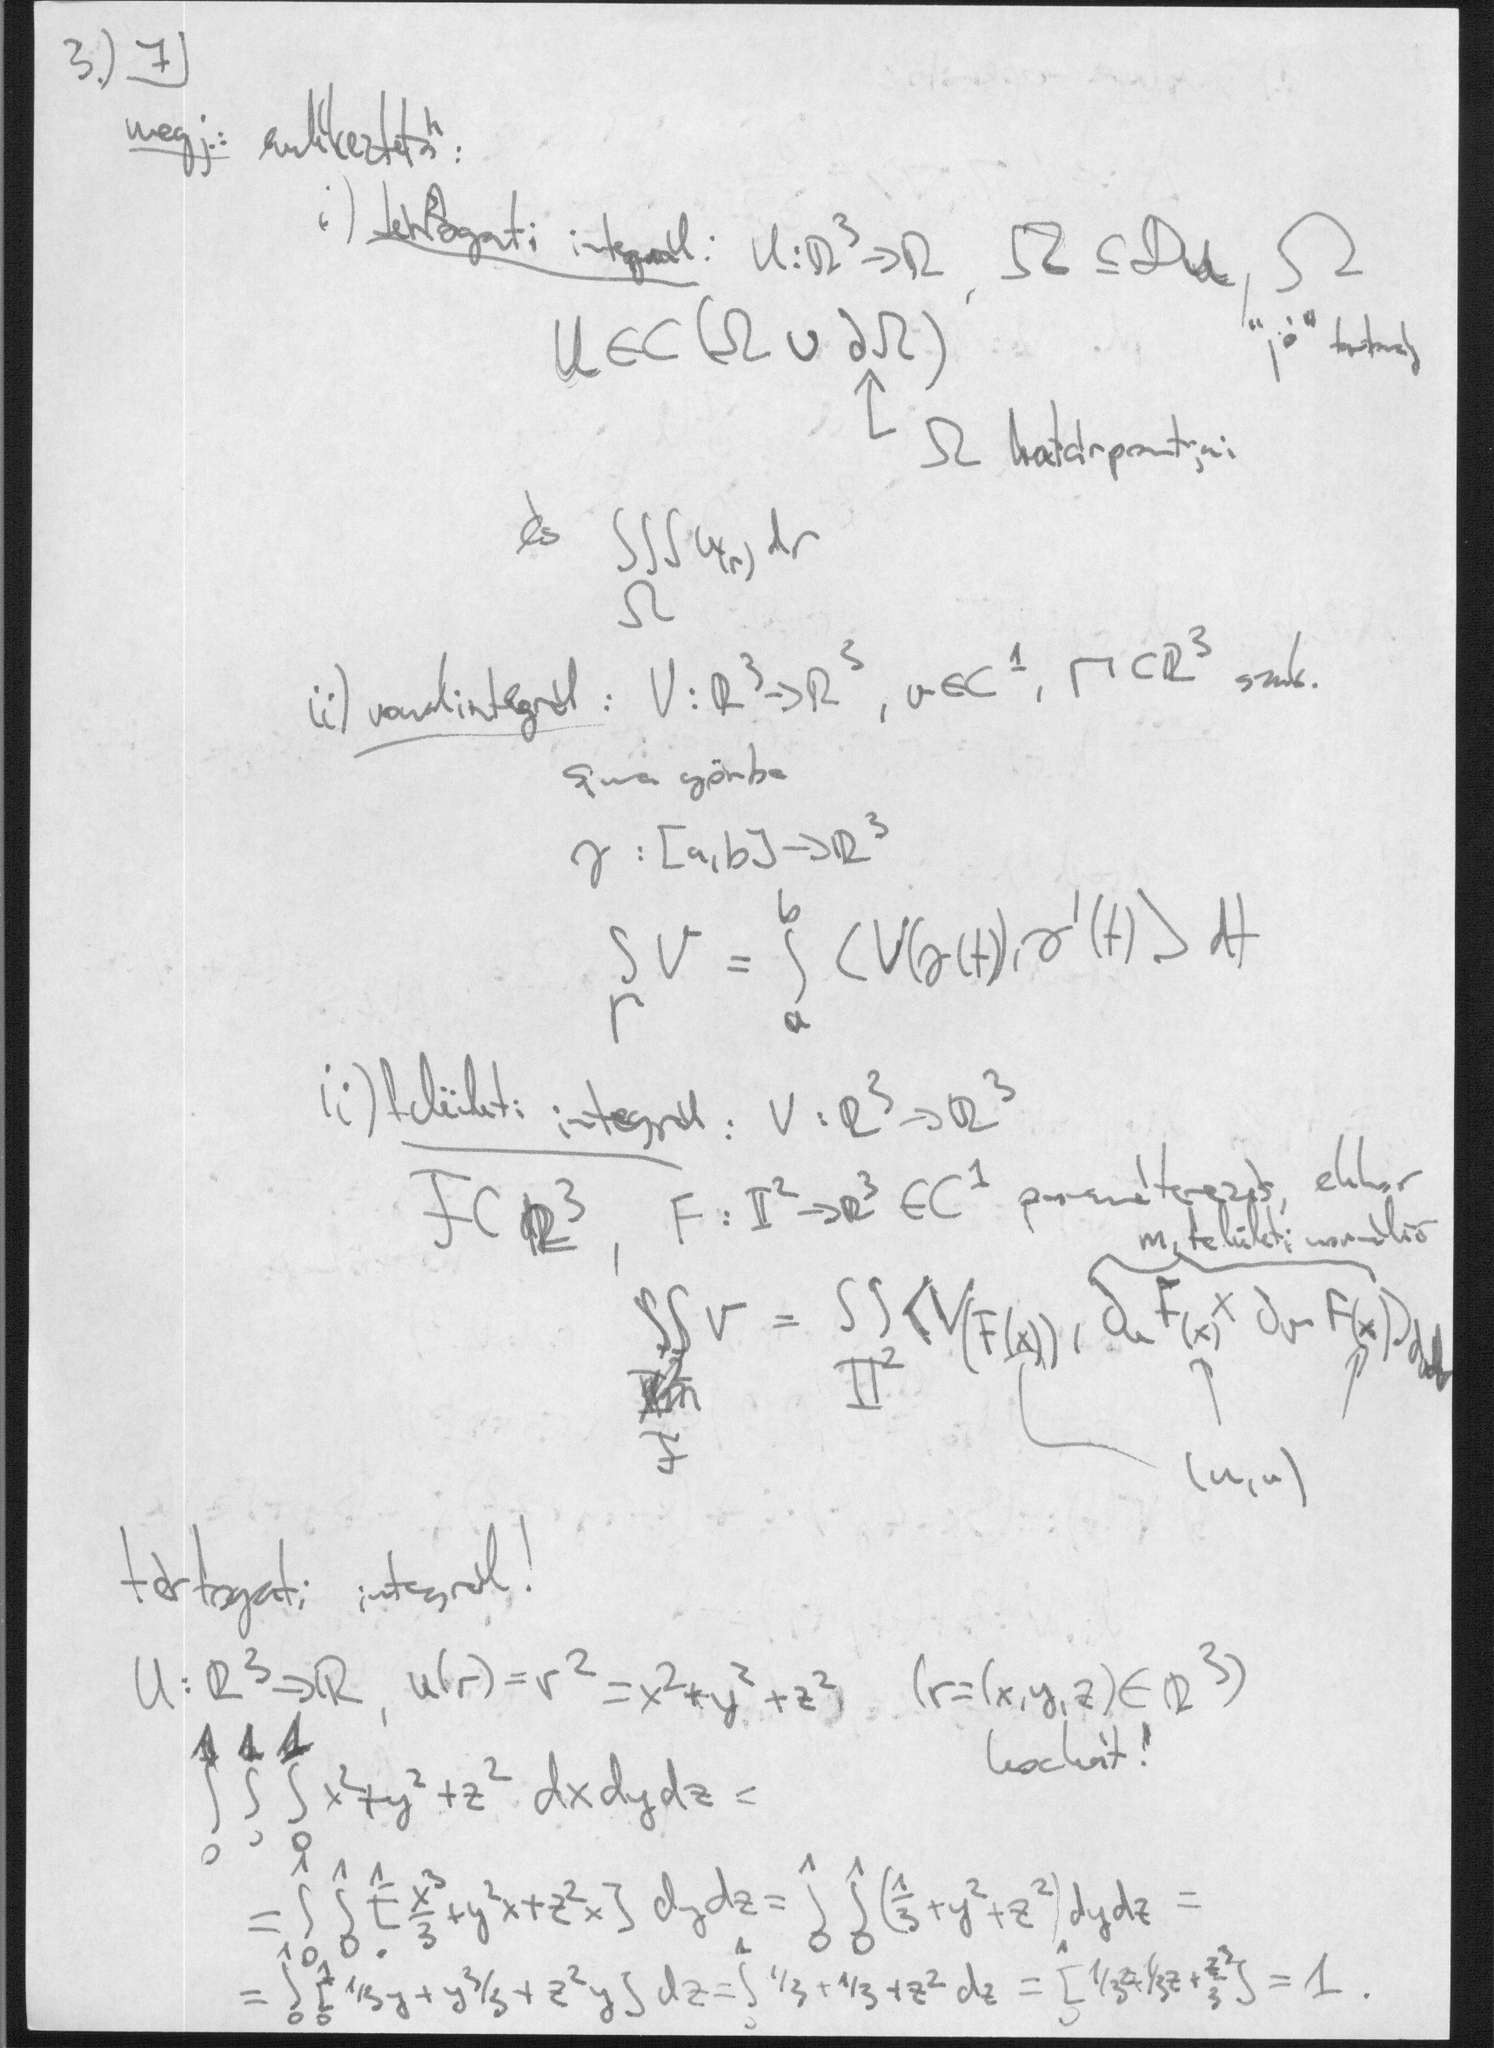 3.) 7
megj.: emlékeztető:
i) térfogati integrál: U: ℝ³→ℝ, Ω ⊆ D_u, Ω
U ∈ C(Ω ∪ ∂Ω) "jó" tartomány
↑ Ω határpontjai
és ∫∫∫_Ω u(r) dr
ii) vonalintegrál: V: ℝ³→ℝ³, v∈C¹, Γ⊂ℝ³ szak.
sima görbe
γ: [a,b]→ℝ³
∫_Γ V = ∫_a^b ⟨V(γ(t)), γ'(t)⟩ dt
ii) felületi integrál: V: ℝ³→ℝ³
F⊂ℝ³, F: II²→ℝ³ ∈C¹ paraméterezés, ekkor
felületi
∫∫_F v = ∫∫_II² ⟨V(F(x)), ∂_u F(x) × ∂_v F(x)⟩ dudv
(u,v)
térfogati integrál!
U: ℝ³→ℝ, u(r)=r²=x²+y²+z², (r=(x,y,z)∈ℝ³)
kockát!
∫_0^1 ∫_0^1 ∫_0^1 x²+y²+z² dxdydz =
= ∫_0^1 ∫_0^1 [x³/3+y²x+z²x]_0^1 dydz = ∫_0^1 ∫_0^1 (1/3+y²+z²) dydz =
= ∫_0^1 [1/3y+y³/3+z²y]_0^1 dz = ∫_0^1 1/3+1/3+z² dz = [1/3z+1/3z+z³/3]_0^1 = 1.